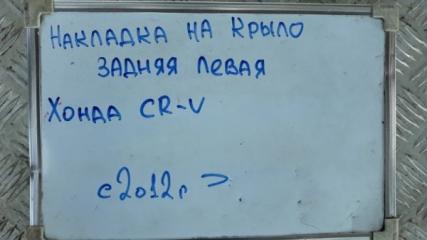 Накладка на крыло
задняя левая
Хонда CR-V
с 2012г >